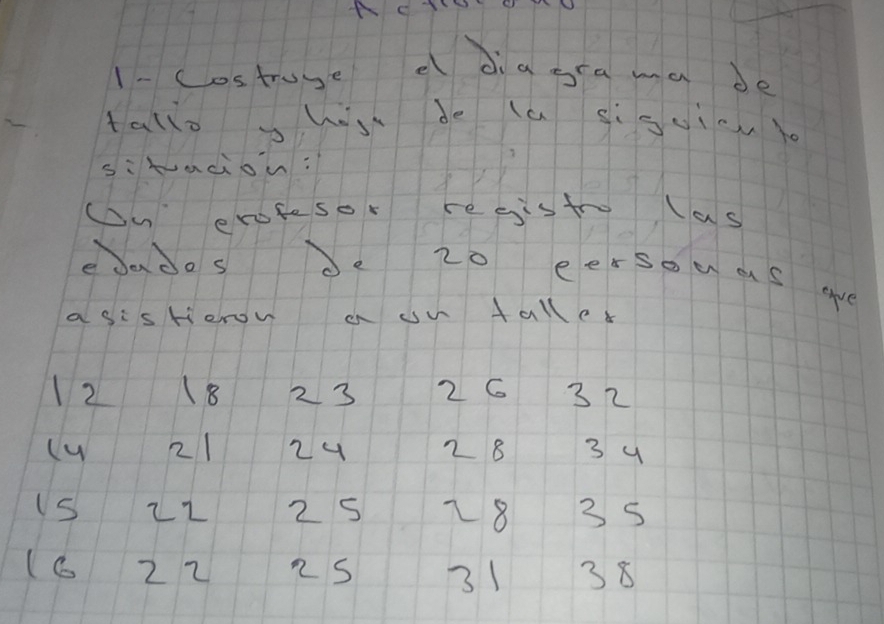 1- Costruye el diagrama de
tallo y hoja de la siguiente
situación:
Un profesor registro las
edades de 20 personas que
asistieron a un taller
12 18 23 26 32
14 21 24 28 34
15 22 25 28 35
16 22 25 31 38